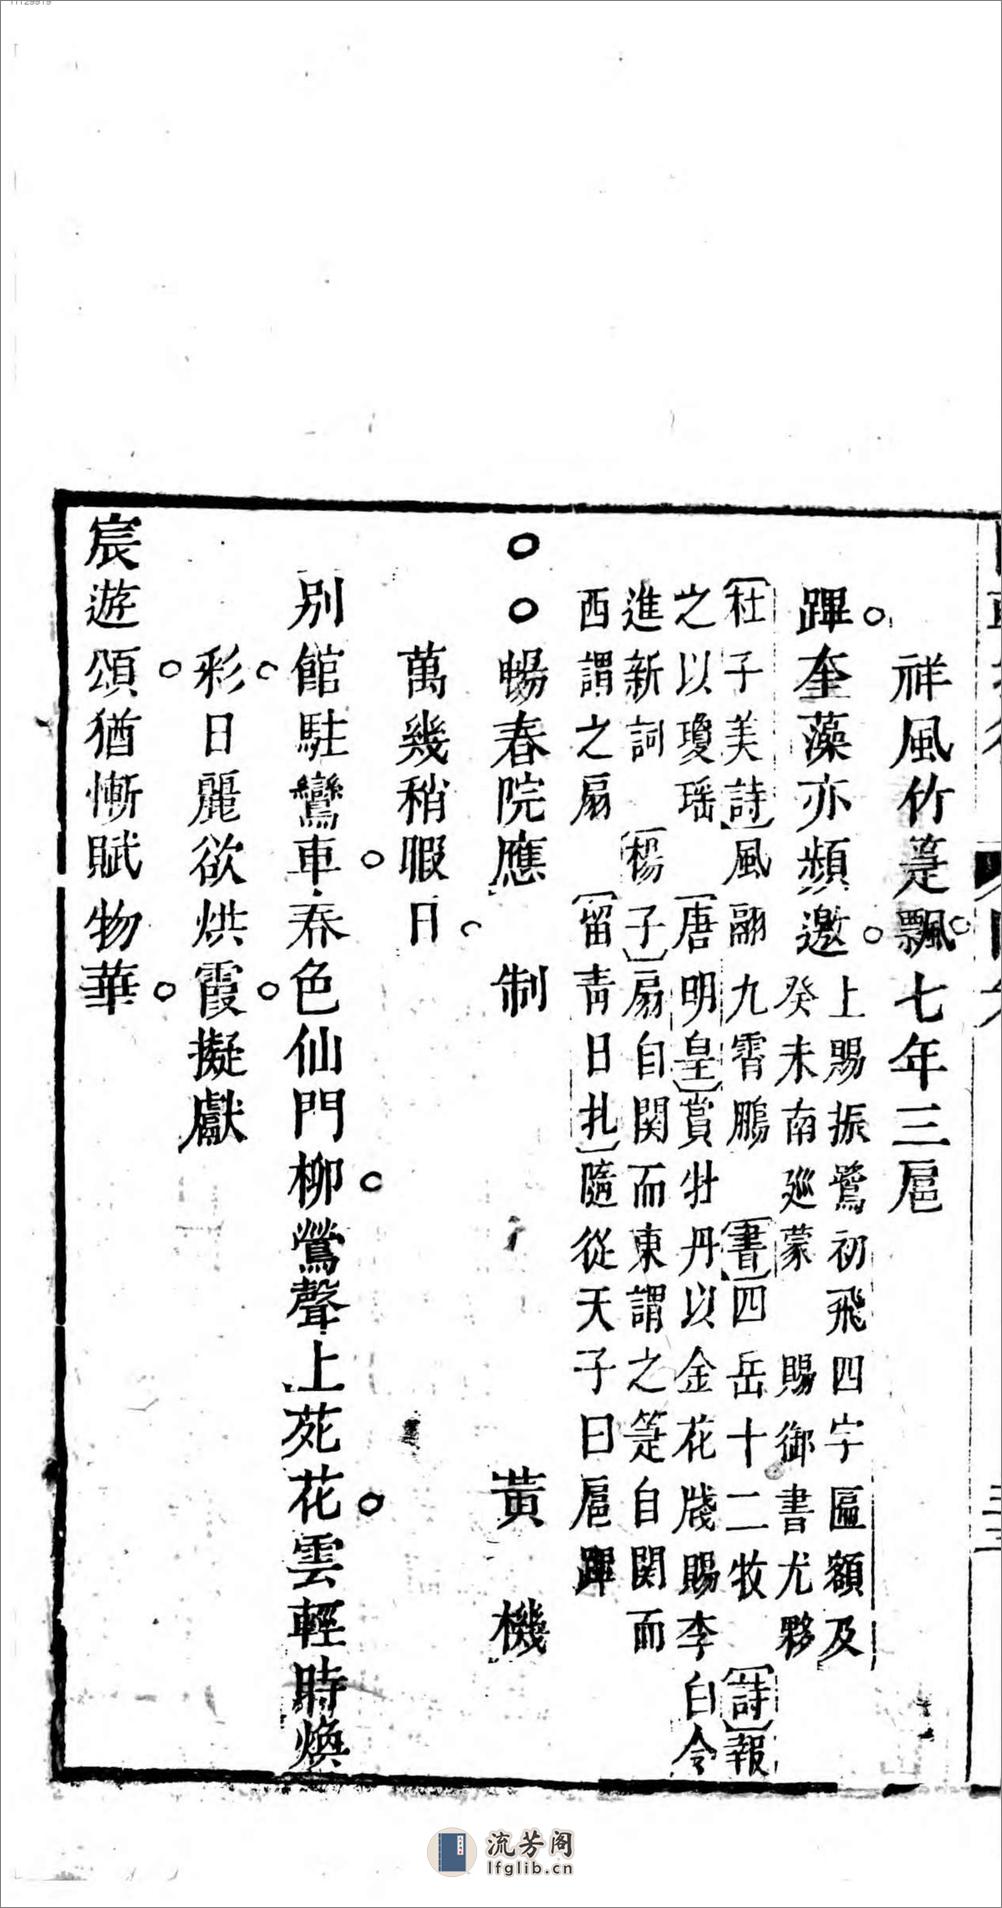 祥風竹箑飄七年三扈
蹕奎藻亦頻邀
上賜振鷺初飛四字匾額及
癸未南廵蒙 賜御書尤夥
〔杜子美詩〕風翮九霄鵬 〔書〕四岳十二牧 〔詩〕報
之以瓊瑶 〔唐明皇〕賞牡丹以金花牋賜李白令
進新詞 〔楊子〕扇自関而東謂之箑自関而
西謂之扇 〔留青日扎〕隨從天子曰扈蹕
○○暢春院應 制 黃 機
萬幾稍暇日
別館駐鸞車春色仙門柳鶯聲上苑花雲輕時煥
彩日麗欲烘霞擬獻
宸遊頌猶慚賦物華
流芳阁
lfglib.cn